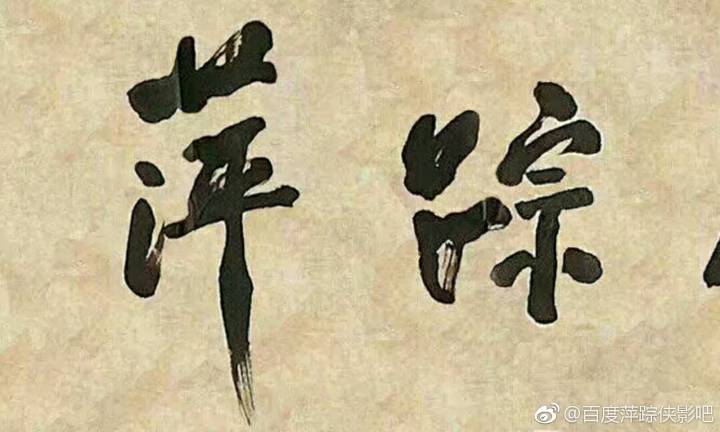 萍踪
@百度萍踪侠影吧